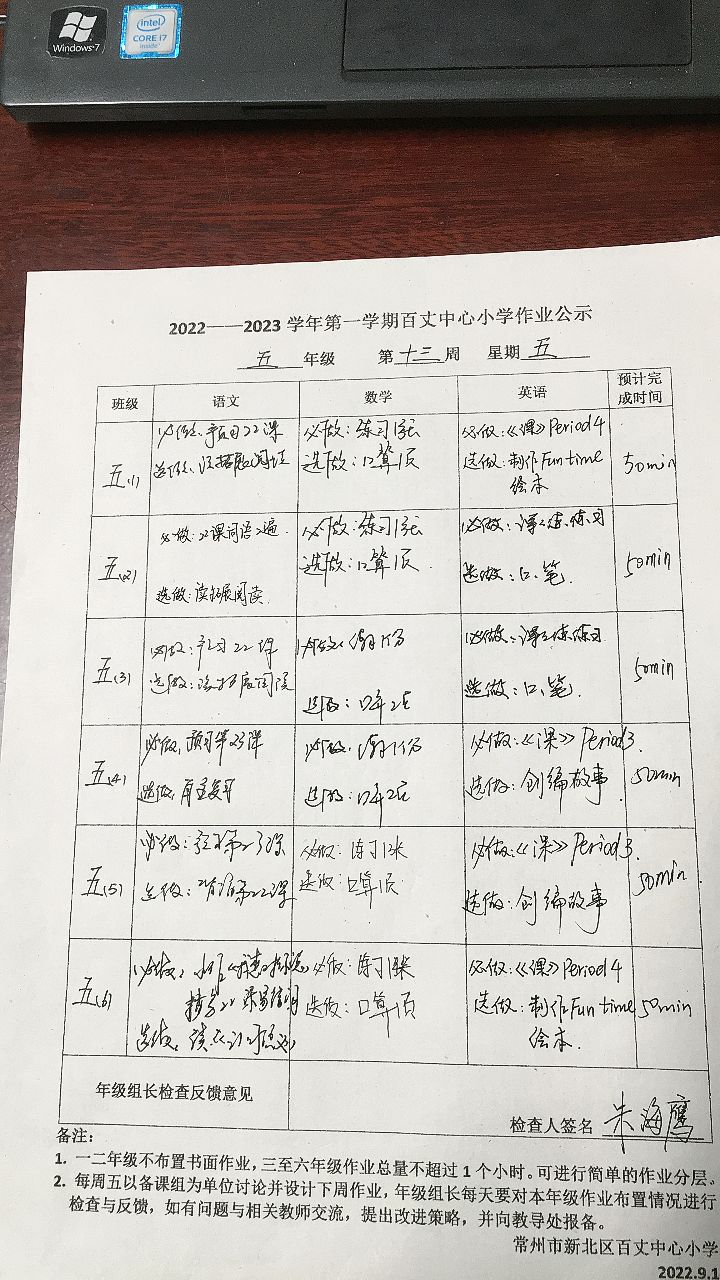 Windows 7
intel
CORE i7
inside
2022——2023 学年第一学期百丈中心小学作业公示
五 年级 第 十三 周 星期 五
班级 语文 数学 英语 预计完成时间
五(1)
必做：预习22课
选做：
必做：练习1张
选做：口算1页
必做：《课》Period 4
选做：制作Fun time
绘本
50min
五(2)
必做：22课词语2遍
选做：读拓展阅读
必做：练习1张
选做：口算1页
必做：课课练练习
选做：口、笔.
50min
五(3)
必做：预习22课
选做：读拓展阅读
必做：1份
选做：口算2页
必做：课课练练习
选做：口、笔.
50min
五(4)
必做：预习第23课
选做：
必做：1份
选做：口算2页
必做：《课》Period 3.
选做：创编故事
50min
五(5)
必做：预习第23课
选做：第22课
必做：练习1张
选做：口算1页
必做：《课》Period 3.
选做：创编故事
50min
五(6)
必做：
选做：读
必做：练习1张
选做：口算1页
必做：《课》Period 4
选做：制作Fun time
绘本.
50min
年级组长检查反馈意见
检查人签名 朱海鹰
备注：
1. 一二年级不布置书面作业，三至六年级作业总量不超过 1 个小时。可进行简单的作业分层。
2. 每周五以备课组为单位讨论并设计下周作业，年级组长每天要对本年级作业布置情况进行
检查与反馈，如有问题与相关教师交流，提出改进策略，并向教导处报备。
常州市新北区百丈中心小学
2022.9.1